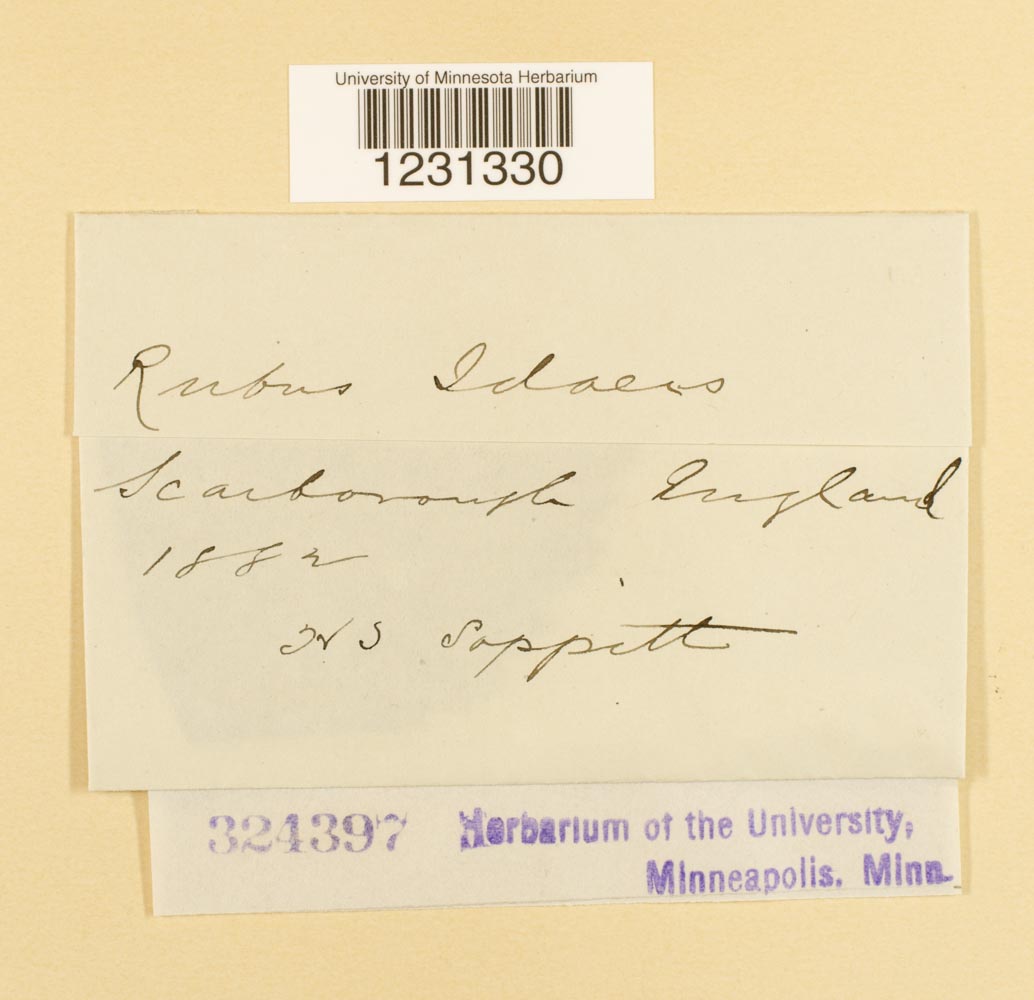 University of Minnesota Herbarium
1231330
Rubus Idaeus
Scarborough England
1882
H S Soppitt
324397 Herbarium of the University,
Minneapolis. Minn.